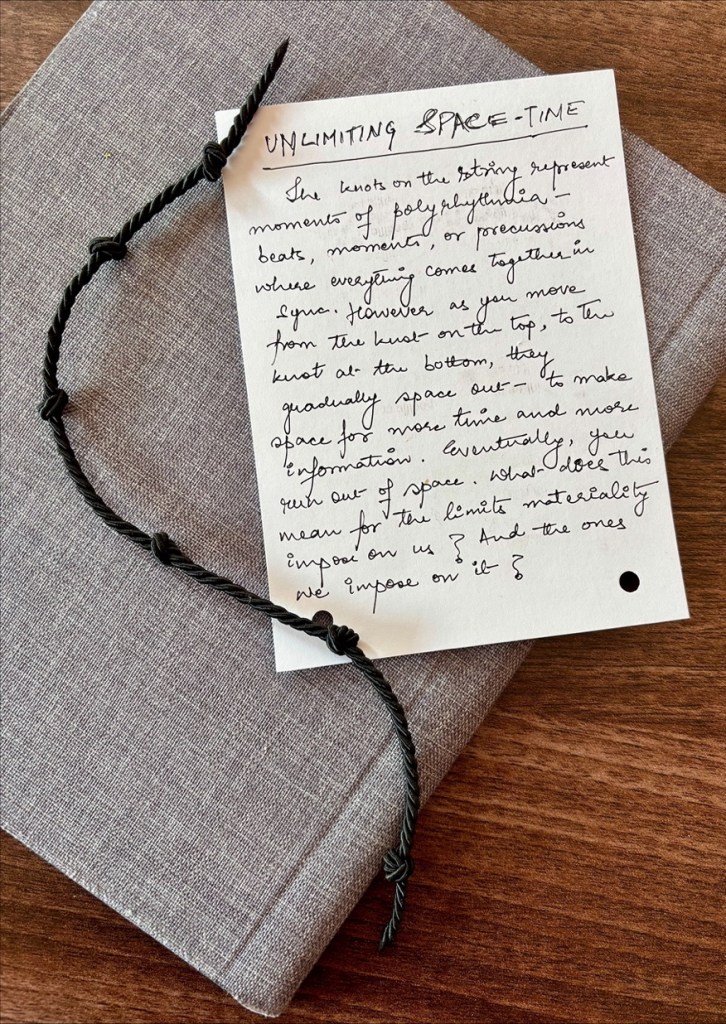 UNLIMITING SPACE-TIME
The knots on the string represent
moments of polyrhythmia -
beats, moments, or precussions
where everything comes together in
sync. However as you move
from the knot on the top, to the
knot at the bottom, they
gradually space out - to make
space for more time and more
information. Eventually, you
run out of space. What does this
mean for the limits materiality
impose on us? And the ones
we impose on it?